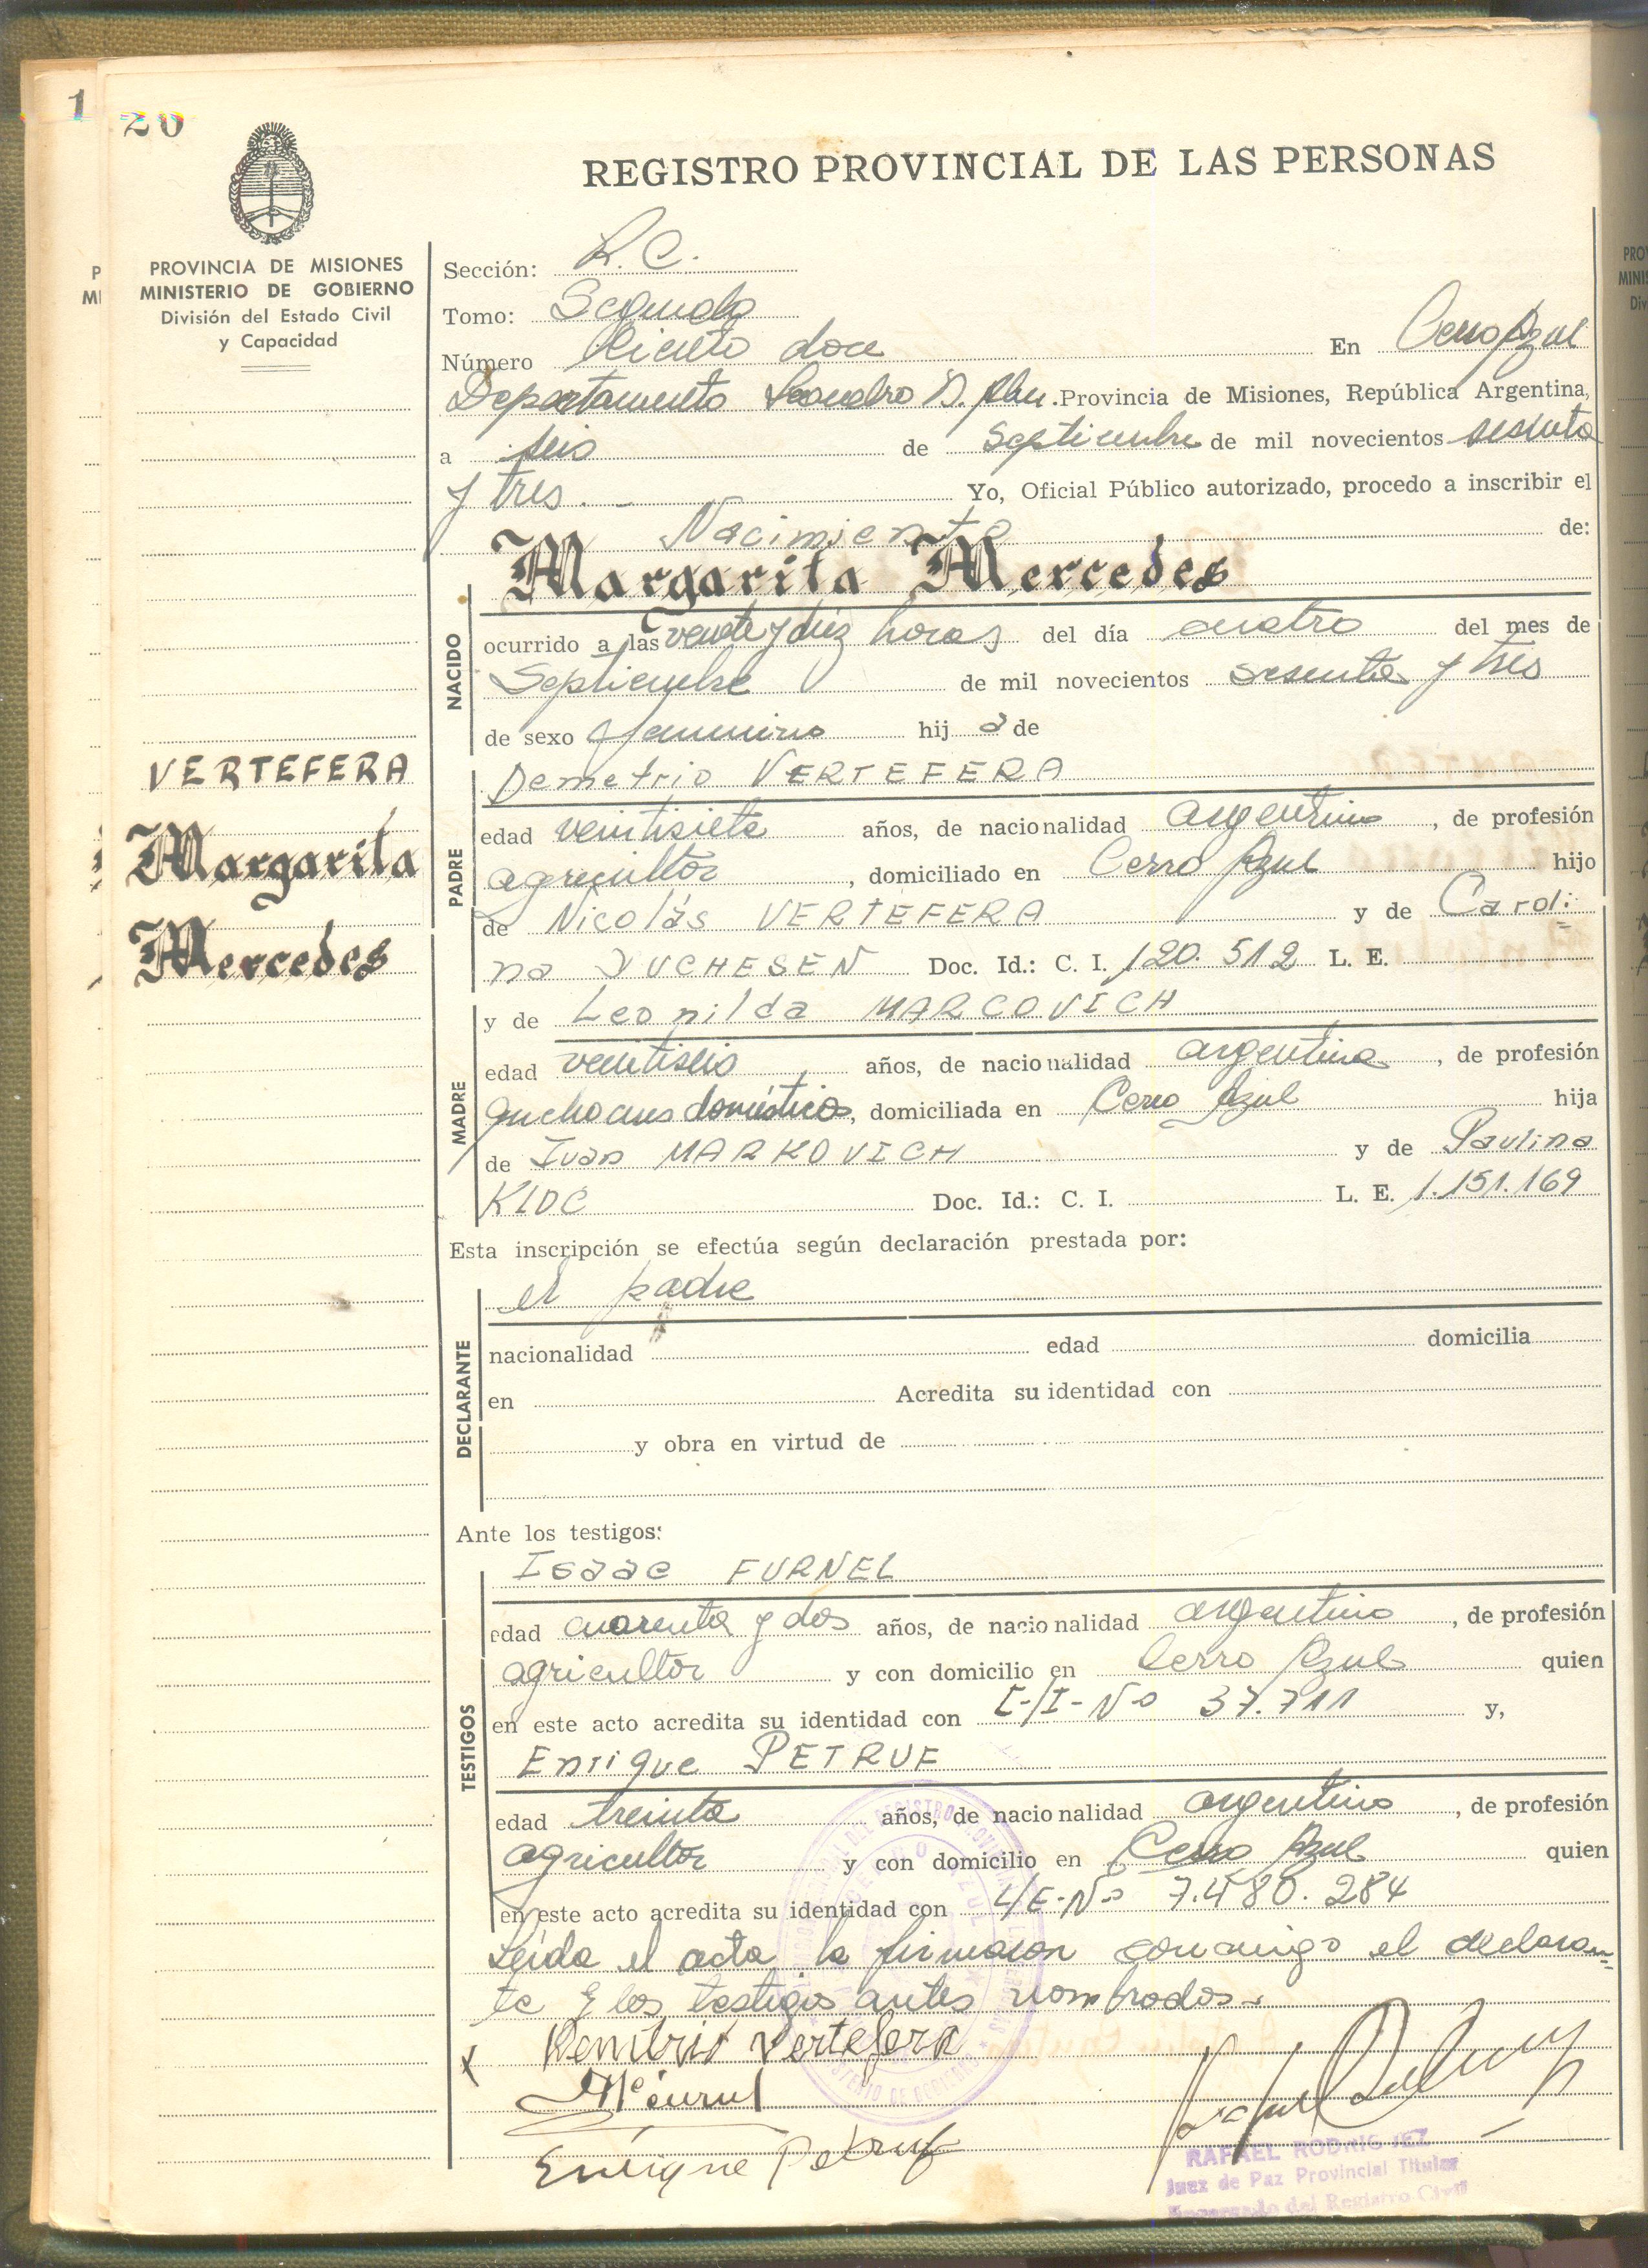 1
20
REGISTRO PROVINCIAL DE LAS PERSONAS
PROVINCIA DE MISIONES
MINISTERIO DE GOBIERNO
División del Estado Civil
y Capacidad
VERTEFERA
Margarita
Mercedes
Sección:
Tomo: Segundo
Número Ciento doce En Cerro Azul
Departamento Leandro N. Alem. Provincia de Misiones, República Argentina,
a seis de Septiembre de mil novecientos sesenta
y tres.— Yo, Oficial Público autorizado, procedo a inscribir el
Nacimiento de:
Margarita Mercedes
NACIDO
ocurrido a las veinte y diez horas del día cuatro del mes de
Septiembre de mil novecientos sesenta y tres
de sexo femenino hija de
Demetrio VERTEFERA
PADRE
edad veintisiete años, de nacionalidad argentino, de profesión
agricultor, domiciliado en Cerro Azul hijo
de Nicolás VERTEFERA y de Caroli=
na DUCHESEN Doc. Id.: C. I. 120.512 L. E.
y de Leonilda MARCOVICH
MADRE
edad veintiseis años, de nacionalidad argentina, de profesión
quehaceres domésticos, domiciliada en Cerro Azul hija
de Ivan MARKOVICH y de Paulina
KLOC Doc. Id.: C. I. L. E. 1.151.169
Esta inscripción se efectúa según declaración prestada por:
el padre
DECLARANTE
nacionalidad edad domicilia
en Acredita su identidad con
y obra en virtud de
Ante los testigos:
Isaac FURNEL
TESTIGOS
edad cuarenta y dos años, de nacionalidad argentino, de profesión
agricultor y con domicilio en Cerro Azul quien
en este acto acredita su identidad con C/I-Nº 37.711 y,
Enrique PETRUF
edad treinta años, de nacionalidad argentino, de profesión
agricultor y con domicilio en Cerro Azul quien
en este acto acredita su identidad con L/E-Nº 7.480.284
Leída el acta, la firmaron conmigo el declaran=
te y los testigos antes nombrados.
x Demetrio Vertefera
Enrique Petruf
RAFAEL RODRIGUEZ
Juez de Paz Provincial Titular
Encargado del Registro Civil